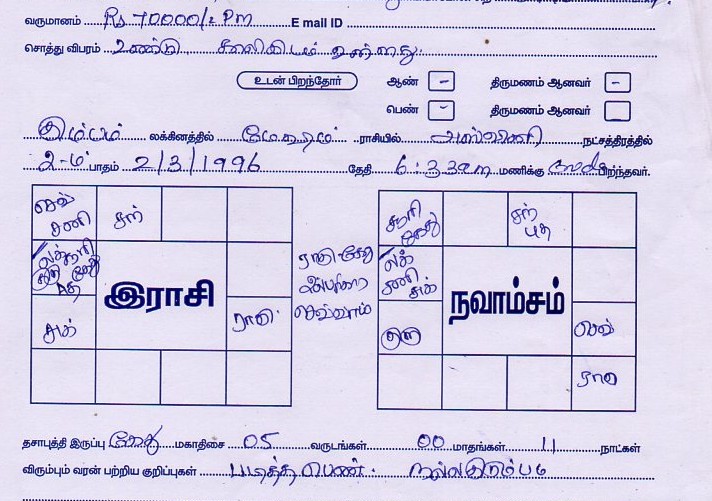 வருமானம் Rs 10000/= Pm E mail ID
சொத்து விபரம் உண்டு
உடன் பிறந்தோர் ஆண் - திருமணம் ஆனவர் -
பெண் - திருமணம் ஆனவர்
கும்பம் லக்கினத்தில் மேஷம் ராசியில் அஸ்வினி நட்சத்திரத்தில்
2-ம் பாதம் 2/3/1996 தேதி 6:33am மணிக்கு பிறந்தவர்.
செவ் சனி சந்
லக் சூரி புத
இராசி
சுக் ராகு
ராகு கேது
செவ்வாய்
சூரி கேது சந் புத
லக் சனி சுக்
நவாம்சம்
குரு செவ்
ராகு
தசாபுத்தி இருப்பு கேது மகாதிசை 05 வருடங்கள் 00 மாதங்கள் 11 நாட்கள்
விரும்பும் வரன் பற்றிய குறிப்புகள் படித்த பெண். நல்ல குடும்பம்